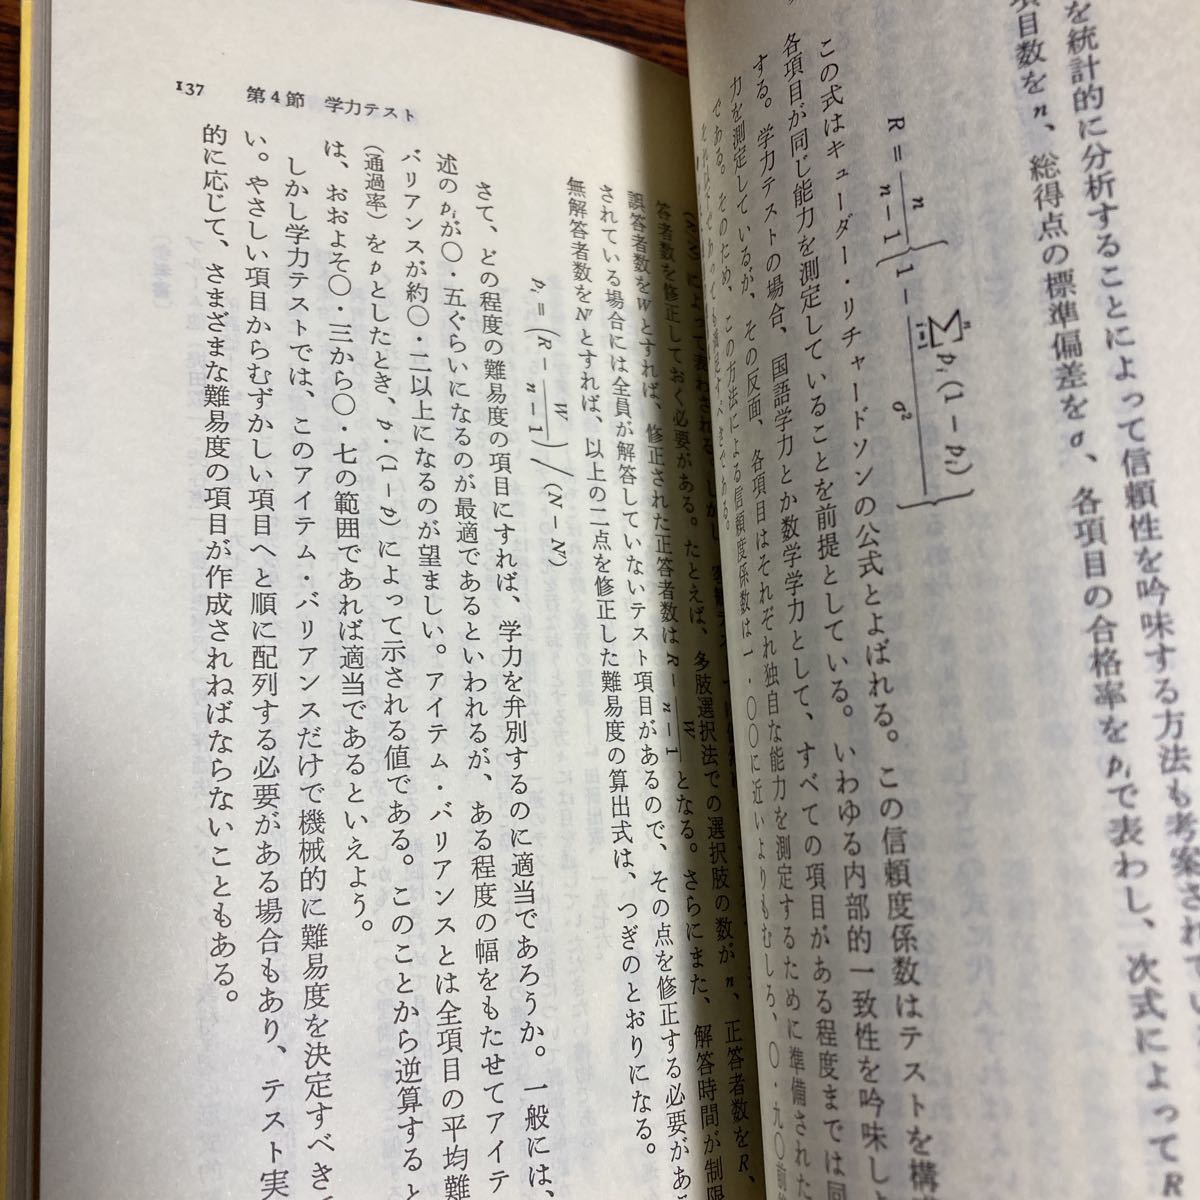 を統計的に分析することによって信頼性を吟味する方法も考案されてい
項目数を n、総得点の標準偏差を σ、各項目の合格率を pᵢ で表わし、次式によって R
R = n/(n−1) {1 − Σⁿᵢ₌₁ pᵢ(1−pᵢ)/σ²}
この式はキューダー・リチャードソンの公式とよばれる。この信頼度係数はテストを構
各項目が同じ能力を測定していることを前提としている。いわゆる内部的一致性を吟味し
する。学力テストの場合、国語学力とか数学学力として、すべての項目がある程度までは同
力を測定しているが、その反面、各項目はそれぞれ独自な能力を測定するために準備された
である。そのため、この方法による信頼度係数は一・〇〇に近いよりもむしろ、〇・九〇前
137 第4節 学力テスト
答者数を修正しておく必要がある。たとえば、多肢選択法での選択肢の数が n、正答者数を R、
誤答者数を W とすれば、修正された正答者数は R − W/(n−1) となる。さらにまた、解答時間が制限
されている場合には全員が解答していないテスト項目があるので、その点を修正する必要があ
無解答者数を N′ とすれば、以上の二点を修正した難易度の算出式は、つぎのとおりになる。
pᵢ = (R − W/(n−1)) / (N−N′)
さて、どの程度の難易度の項目にすれば、学力を弁別するのに適当であろうか。一般には、
述の pᵢ が〇・五ぐらいになるのが最適であるといわれるが、ある程度の幅をもたせてアイテ
バリアンスが約〇・二以上になるのが望ましい。アイテム・バリアンスとは全項目の平均難
(通過率)を p としたとき、p・(1−p) によって示される値である。このことから逆算すると
は、おおよそ〇・三から〇・七の範囲であれば適当であるといえよう。
しかし学力テストでは、このアイテム・バリアンスだけで機械的に難易度を決定すべき
い。やさしい項目からむずかしい項目へと順に配列する必要がある場合もあり、テスト実
的に応じて、さまざまな難易度の項目が作成されねばならないこともある。